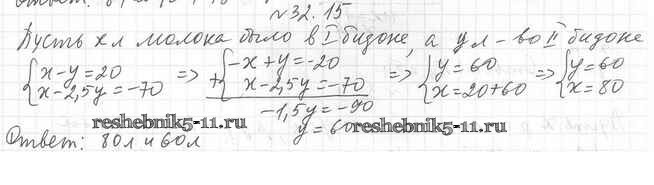 №32.15
Пусть x л молока было в I бидоне, а y л - во II бидоне
{x-y=20 => +{-x+y=-20 => {y=60 => {y=60
{x-2,5y=-70 {x-2,5y=-70 {x=20+60 {x=80
-1,5y=-90
y=60
reshebnik5-11.ru reshebnik5-11.ru
Ответ: 80л и 60л